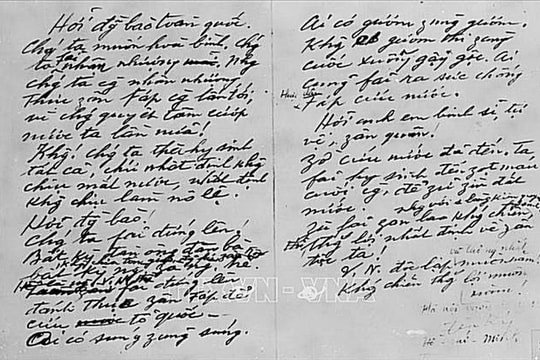 Hỡi đồng bào toàn quốc.
Chúng ta muốn hoà bình, chúng
ta fải nhân nhượng. Nhưng
chúng ta càng nhân nhượng
thực zân Fáp càng lấn tới,
vì chúng quyết tâm cướp
nước ta lần nữa!
Không! Chúng ta thà hy sinh
tất cả, chứ nhất định không
chịu mất nước, nhất định
không chịu làm nô lệ.
Hỡi đồng bào!
Chúng ta fải đứng lên,
Bất kỳ đàn ông đàn bà,
bất kỳ người già người trẻ.
đứng lên
đánh thực zân Fáp để
cứu tổ quốc –
Ai có súng zùng súng.
Ai có gươm zùng gươm.
Không có gươm thì zùng
cuốc xuổng gậy gộc. Ai
cũng fải ra sức chống
Fáp cứu nước.
Hỡi anh em binh sĩ, tự
vệ, zân quân!
Zờ cứu nước đã đến. Ta
fải hy sinh đến zọt máu
cuối cùng, để zữ zìn đất
nước.
Zù fải gian lao kháng chiến,
thắng lợi nhất định về zân
tộc ta!
V.N. độc lập muôn năm!
Kháng chiến thắng lợi muôn
năm!
Hà nội
Hồ-chí-minh
TTXVN-VNA